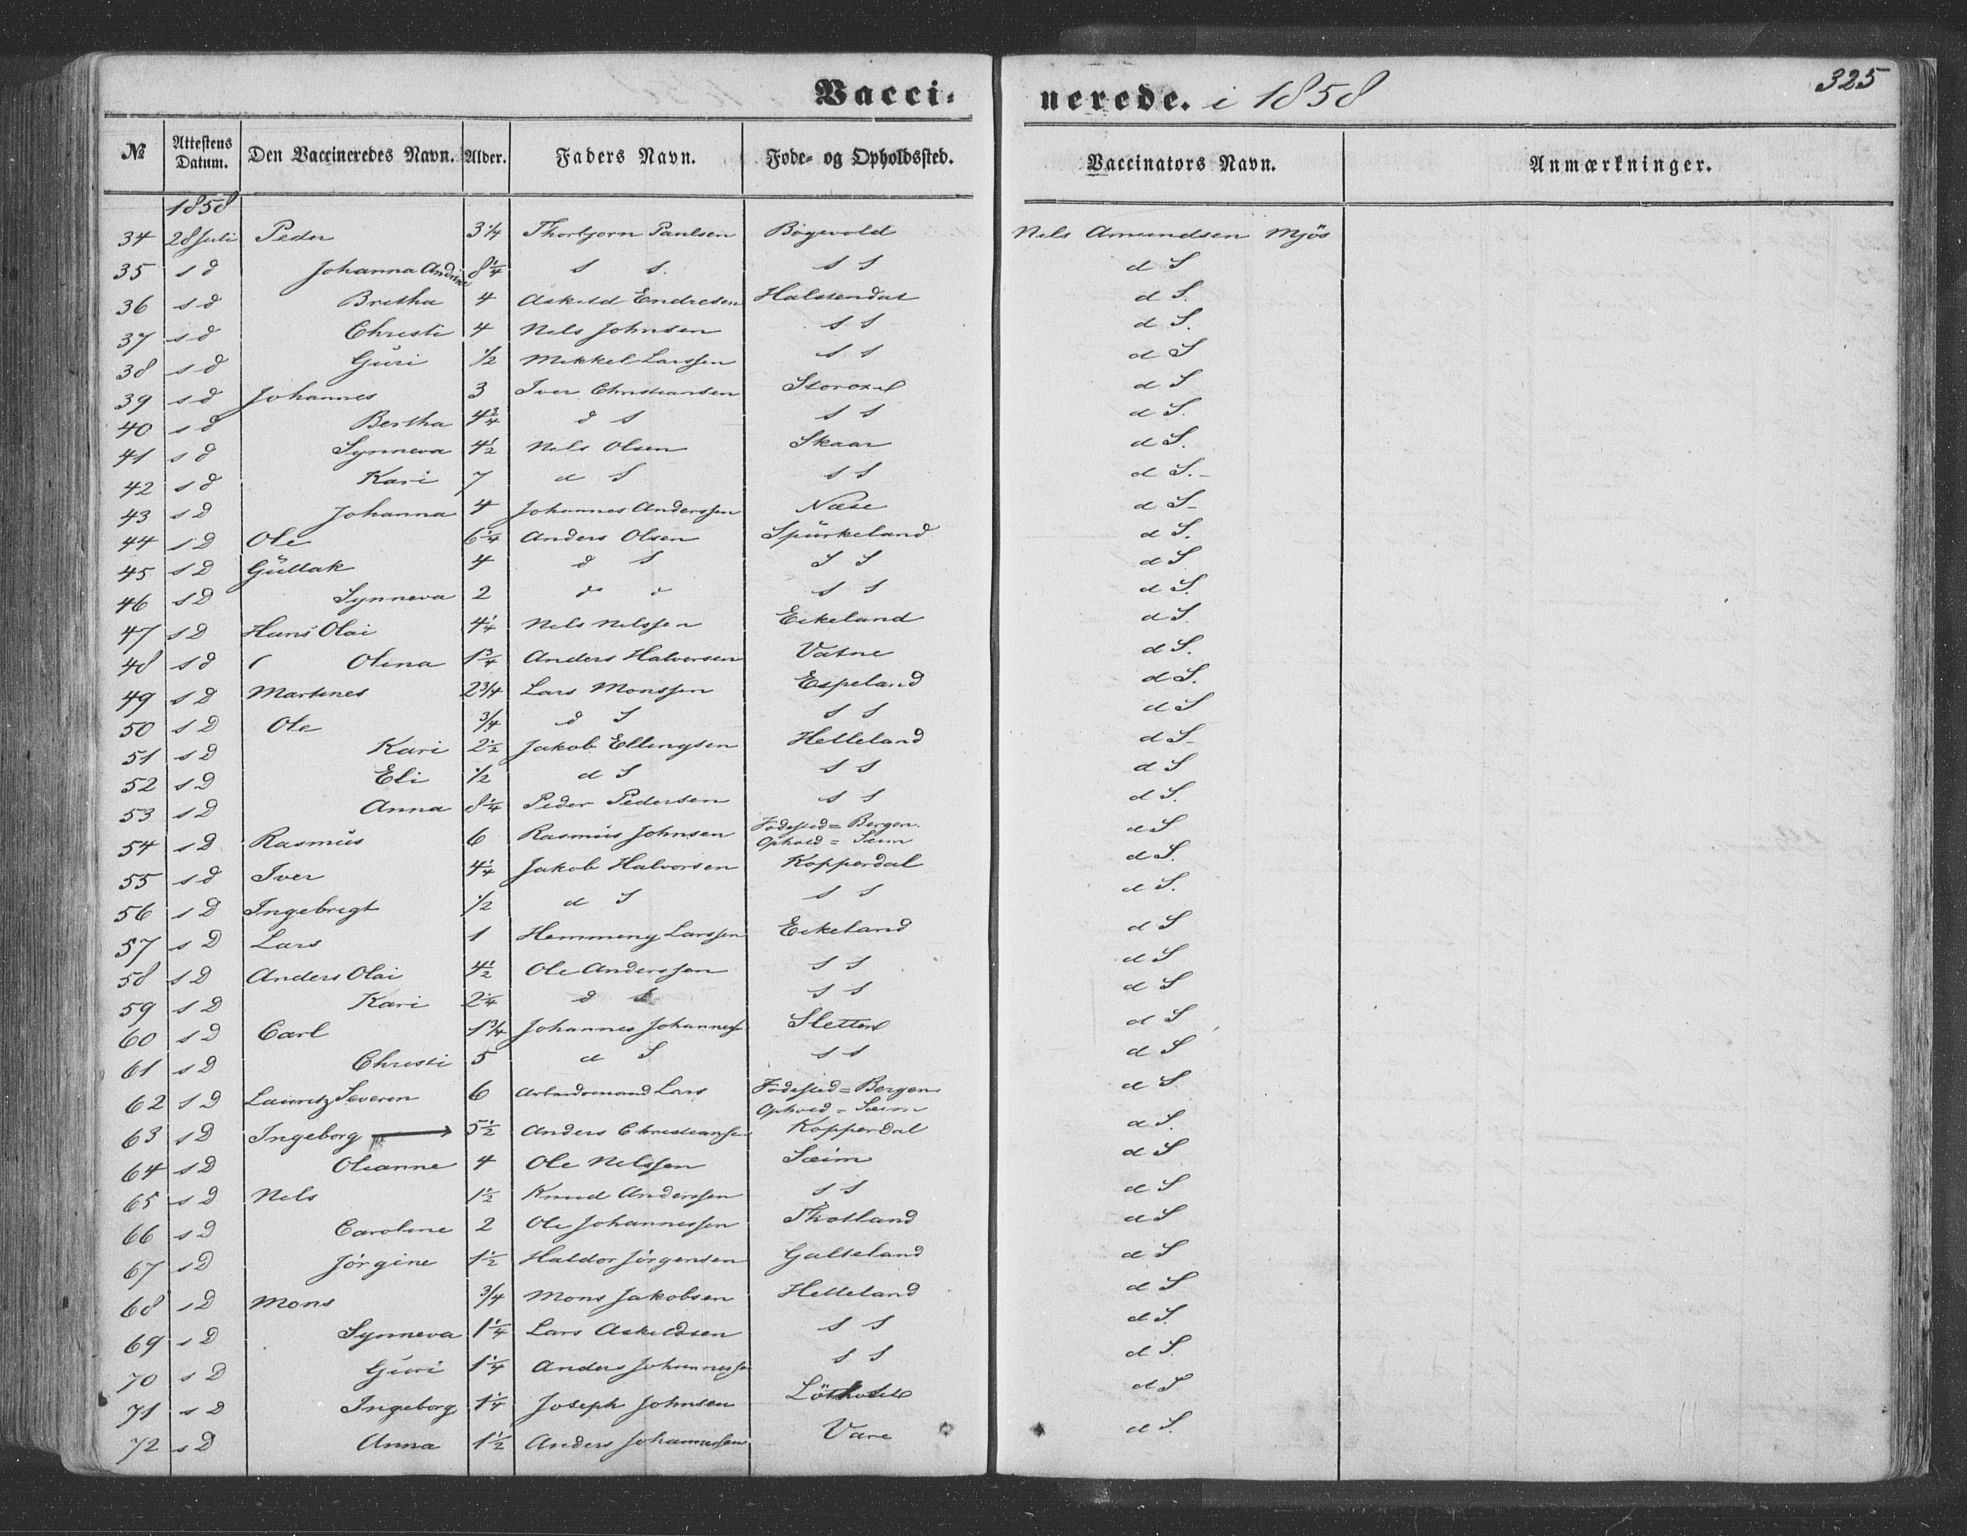 325
Vaccinerede. i 1858
№ Attestens Datum. Den Vaccineredes Navn. Alder. Faders Navn. Føde- og Opholdssted. Vaccinators Navn. Anmærkninger.
1858
34 28 Juli Peder 3 1/4 Thorbjørn Paulsen Bøgevold Nils Amundsen Mjös
35 s d Johanna Andrine 8 1/4 s s. s s d S
36 s d Britha 4 Askild Endresen Halstendal d S.
37 s d Christi 4 Nils Johnsen s s d S.
38 s d Guri 1/2 Mikkel Larssen s s d S
39 s d Johannes 3 Iver Christiansen Storoxel d S
40 s d Bertha 4 3/4 d s s s d S.
41 s d Synneva 4 1/2 Nils Olsen Skaar d S.
42 s d Kari 7 d S s s d S.-
43 s D Johanna 4 Johannes Anderssen Næse d S-
44 s D Ole 6 1/4 Anders Olsen Spürkeland d S.
45 s D Güllak 4 d s S S d S.
46 s D Synneva 2 d d s s d S.
47 s D Hans Olai 4 1/4 Nils Nilssen Eikeland d S.
48 s d Olina 1 3/4 Anders Halvorsen Vatne d S.
49 s D Martines 2 3/4 Lars Monssen Espeland d S.
50 s D Ole 3/4 d S s s d S
51 s D Kari 2 1/2 Jakob Ellingsen Helleland d S-
52 s D Eli 1/2 d S s s d S
53 s D Anna 8 1/4 Peder Pedersen s s d S.
54 s D Rasmüs 6 Rasmüs Johnsen Fødested = Bergen. Ophold = Sæim d S
55 s d Iver 4 1/4 Jakob Halvorsen Kopperdal d S.
56 s D Ingebrigt 1/2 d S s s d S.
57 s D Lars 1 Hemming Larssen Eikeland d S
58 s D Anders Olai 4 1/2 Ole Anderssen s s d S
59 s D Kari 2 1/4 d s s s d S
60 s D Carl 1 3/4 Johannes Johanness Sletten d S
61 s D Christi 5 d S s s d S
62 s D Lauritz Severin 6 Arbeidsmand Lars Fødested = Bergen Ophold = Sæim d S.
63 s D Ingeborg 5 1/2 Anders Christiansen Kopperdal d S.
64 s D Olianne 4 Ole Nilssen Sæim d S
65 s D Nils 1 1/2 Knud Anderssen s s d S
66 s D Caroline 2 Ole Johannessen Thotland d S
67 s D Jørgine 1 1/2 Haldor Jørgensen Galteland d S
68 s D Mons 3/4 Mons Jakobsen Helleland d S
69 s D Synneva 1 1/4 Lars Askildsen s s d S.
70 s D Guri 1 1/4 Anders Johannessen s s d S.
71 s D Ingeborg 1 1/4 Joseph Johnsen d S
72 s D Anna 1 1/2 Anders Johannessen Vare d S.